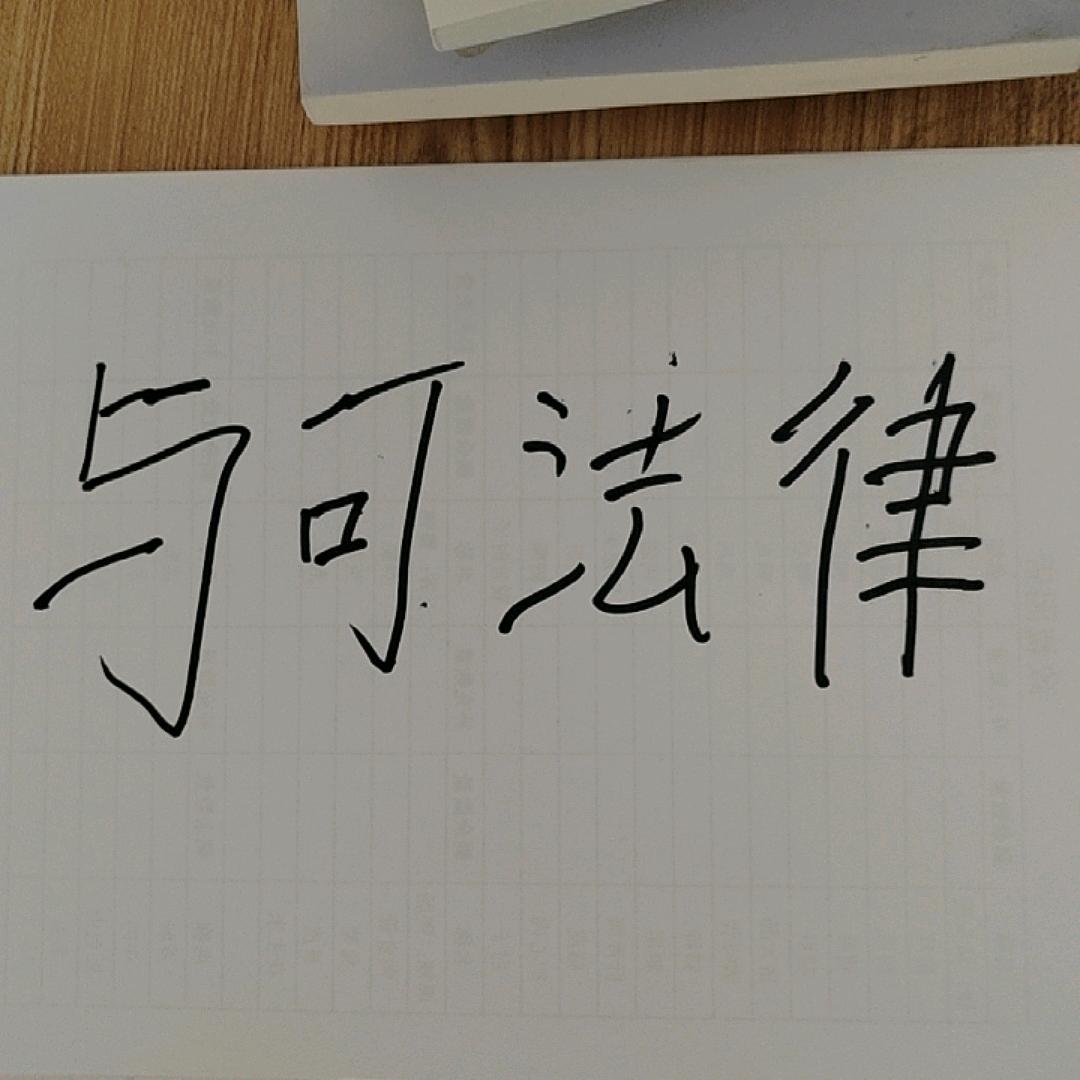 与可法律